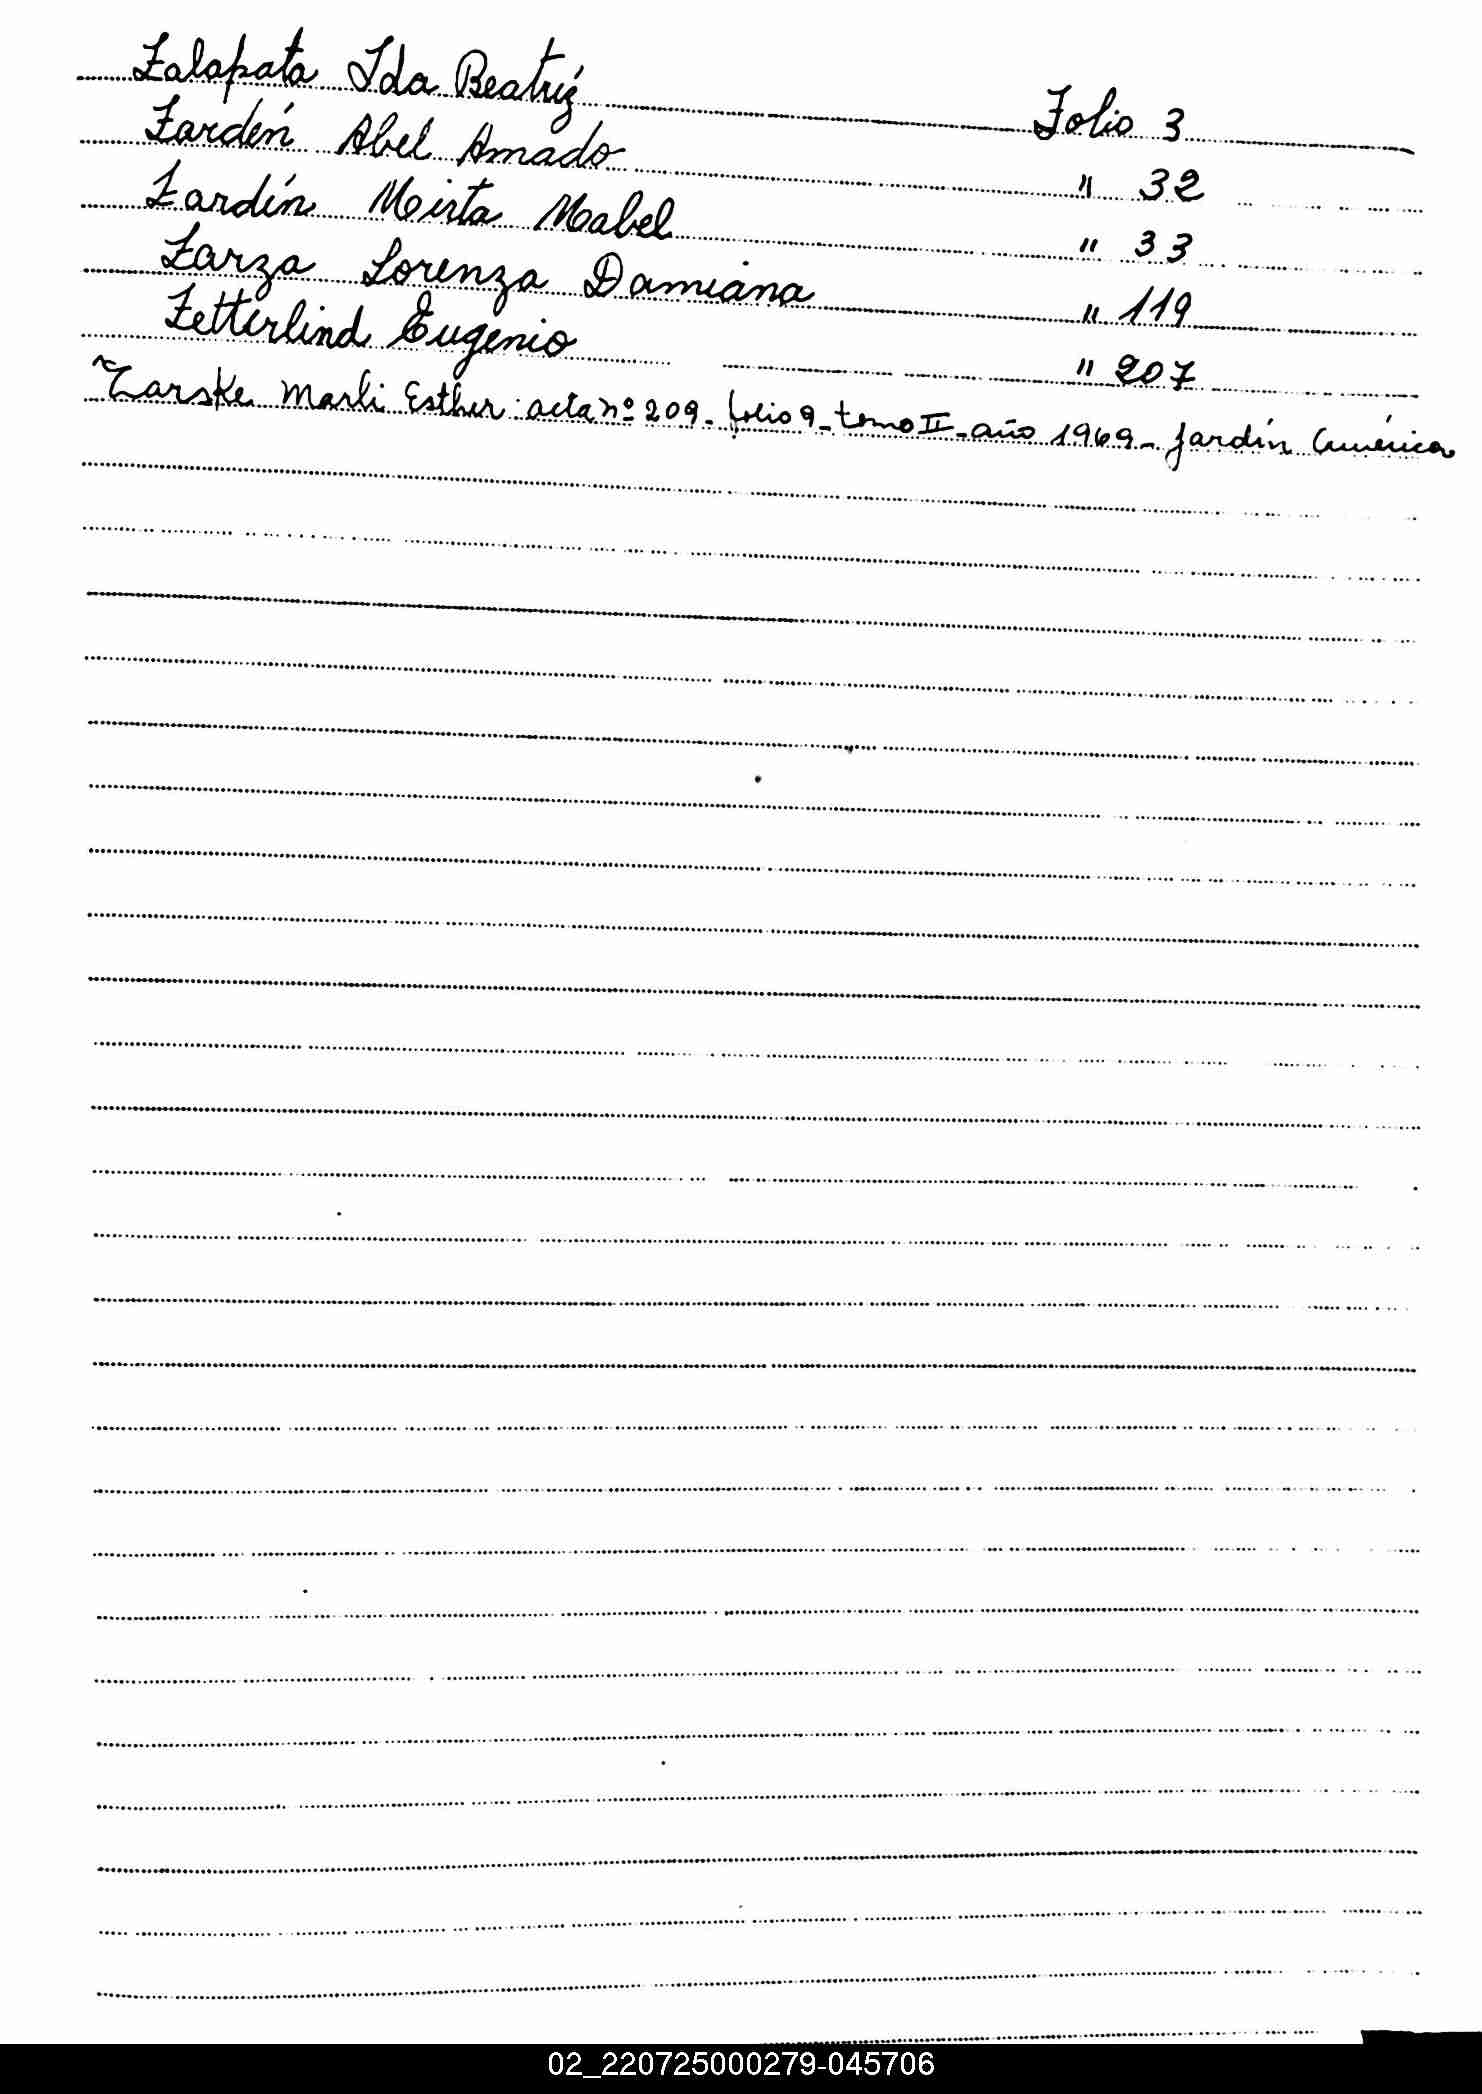 Zalapata Ida Beatríz Folio 3
Zardén Abel Amado " 32
Zardín Mirta Mabel " 33
Zarza Lorenza Damiana " 119
Zetterlind Eugenio " 207
Zarske Marli Esther acta nº 209 - folio 9 - tomo II - año 1969 - Jardín América
02_220725000279-045706